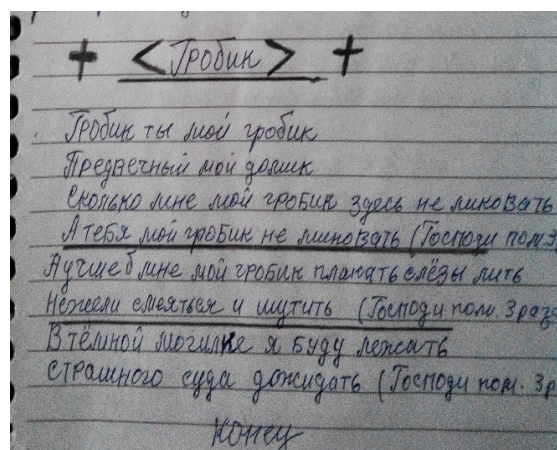 + <Гробик> +
Гробик ты мой гробик
Предвечный мой домик
Сколько мне мой гробик здесь не миковать
А тебя мой гробик не миковать (Господи пом. 3
Лучше б мне мой гробик плакать слёзы лить
Нежели смеяться и шутить (Господи пом. 3 раза
В тёмной могилке я буду лежать
Страшного суда дожидать (Господи пом. 3р
Конец